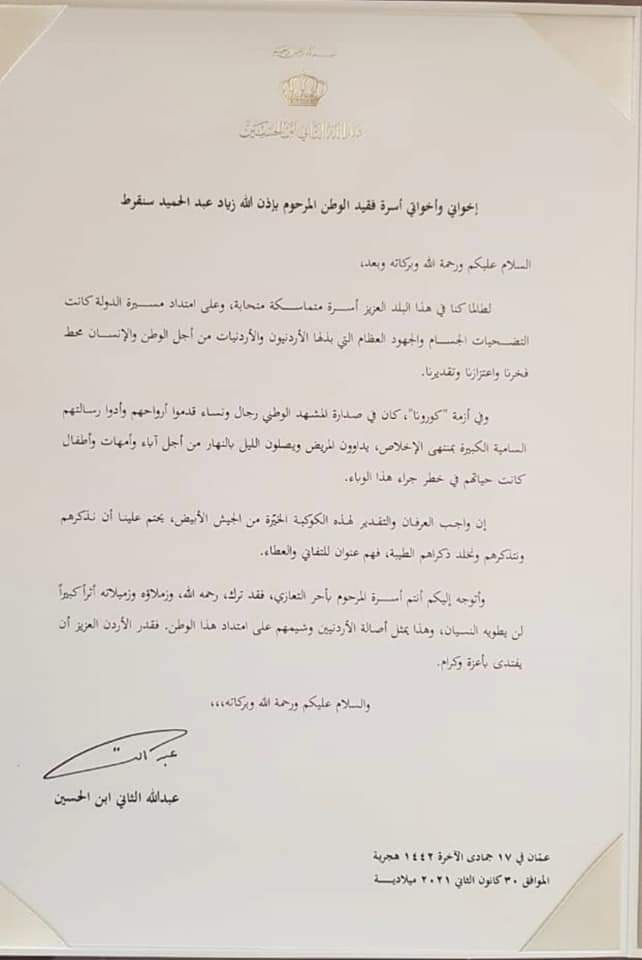 بسم الله الرحمن الرحيم
عبدالله الثاني ابن الحسين
إخواني وأخواتي أسرة فقيد الوطن المرحوم بإذن الله زياد عبد الحميد سنقرط
السلام عليكم ورحمة الله وبركاته وبعد،
لطالما كنا في هذا البلد العزيز أسرة متماسكة متحابة، وعلى امتداد مسيرة الدولة كانت
التضحيات الجسام والجهود العظام التي بذلها الأردنيون والأردنيات من أجل الوطن والإنسان محط
فخرنا واعتزازنا وتقديرنا.
وفي أزمة "كورونا"، كان في صدارة المشهد الوطني رجال ونساء قدموا أرواحهم وأدوا رسالتهم
السامية الكبيرة بمنتهى الإخلاص، يداوون المريض ويصلون الليل بالنهار من أجل آباء وأمهات وأطفال
كانت حياتهم في خطر جراء هذا الوباء.
إن واجب العرفان والتقدير لهذه الكوكبة الخيّرة من الجيش الأبيض، يحتم علينا أن نذكرهم
ونتذكرهم ونخلد ذكراهم الطيبة، فهم عنوان للتفاني والعطاء.
وأتوجه إليكم أنتم أسرة المرحوم بأحر التعازي، فقد ترك، رحمه الله، وزملاؤه وزميلاته أثراً كبيراً
لن يطويه النسيان، وهذا يمثل أصالة الأردنيين وشيمهم على امتداد هذا الوطن. فقدر الأردن العزيز أن
يفتدى بأعزة وكرام.
والسلام عليكم ورحمة الله وبركاته،،،
عبدالله الثاني ابن الحسين
عمّان في ١٧ جمادى الآخرة ١٤٤٢ هجرية
الموافق ٣٠ كانون الثاني ٢٠٢١ ميلادية